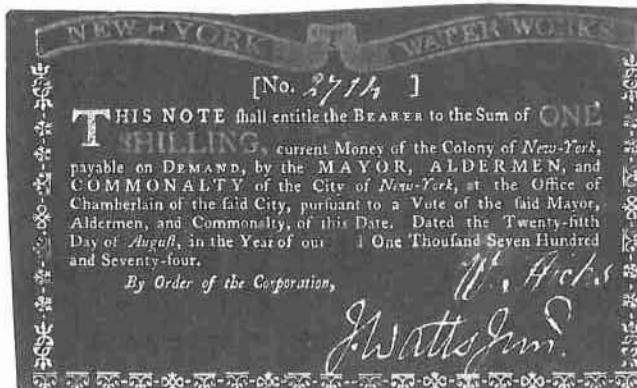 NEW-YORK WATER WORKS
[No. 2714 ]
THIS NOTE ſhall entitle the BEARER to the Sum of ONE
SHILLING, current Money of the Colony of New-York,
payable on DEMAND, by the MAYOR, ALDERMEN, and
COMMONALTY of the City of New-York, at the Office of
Chamberlain of the ſaid City, purſuant to a Vote of the ſaid Mayor,
Aldermen, and Commonalty, of this Date. Dated the Twenty-fifth
Day of Auguſt, in the Year of our d One Thouſand Seven Hundred
and Seventy-four.
W. Hicks
By Order of the Corporation,
J. Watts Junr.